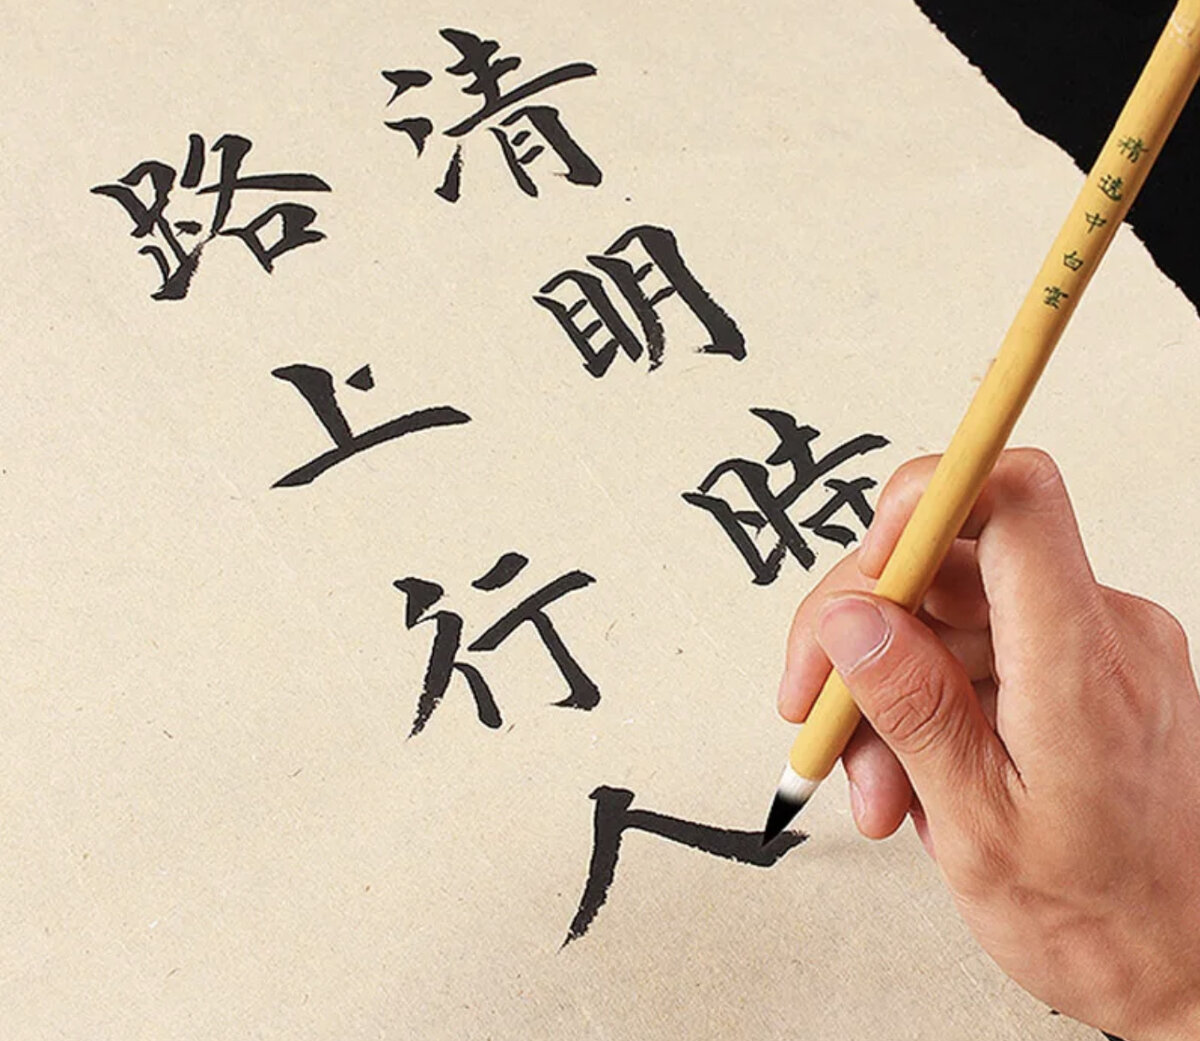 清明時
路上行人
精选中白雲